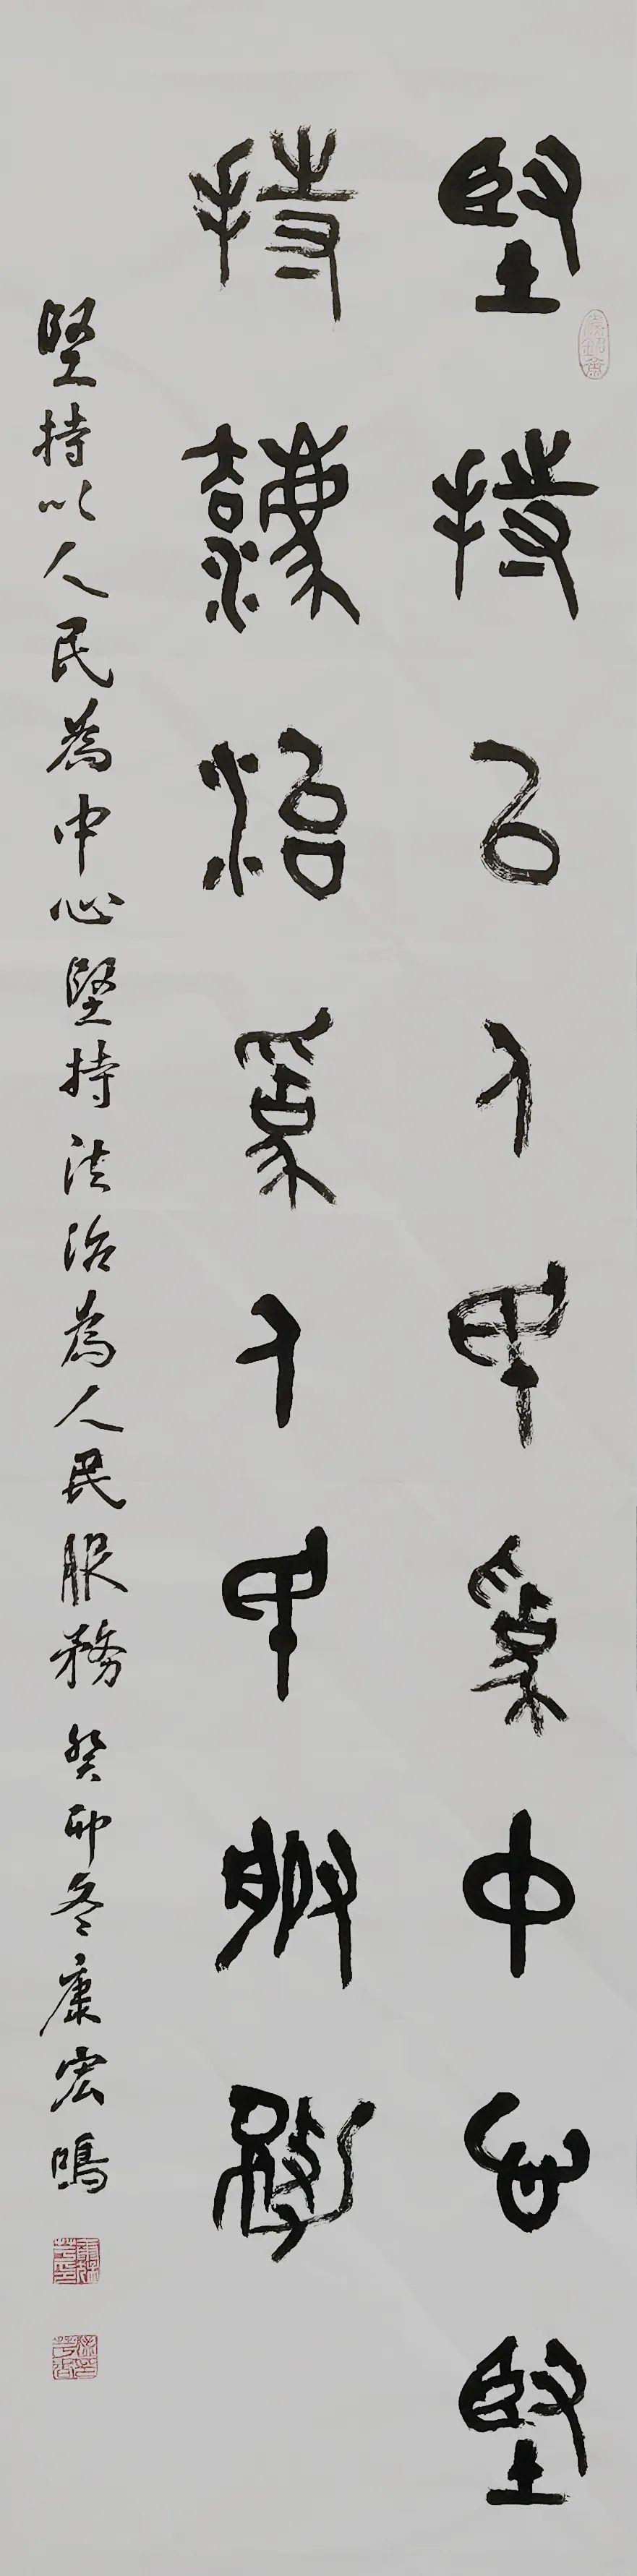 堅持以人民為中心堅
持灋治為人民服務
堅持以人民為中心堅持法治為人民服務癸卯冬康宏鳴